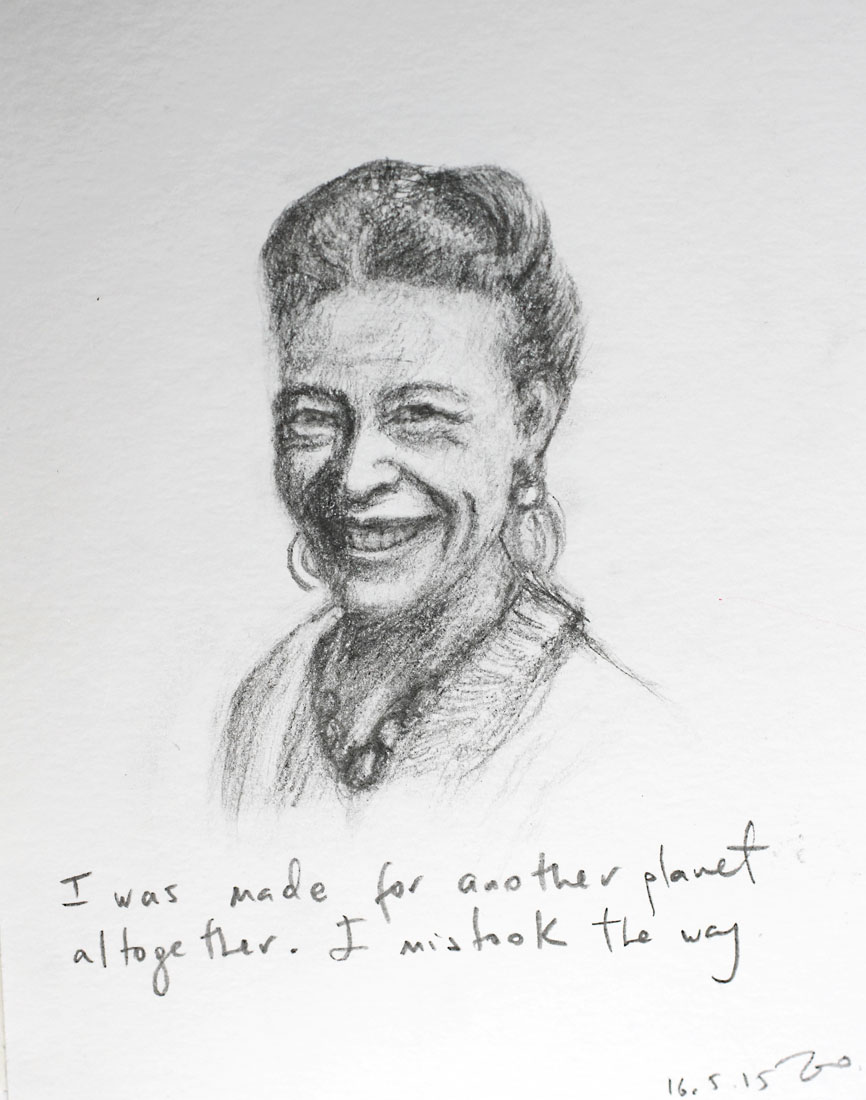 I was made for another planet
altogether. I mistook the way
16.5.15